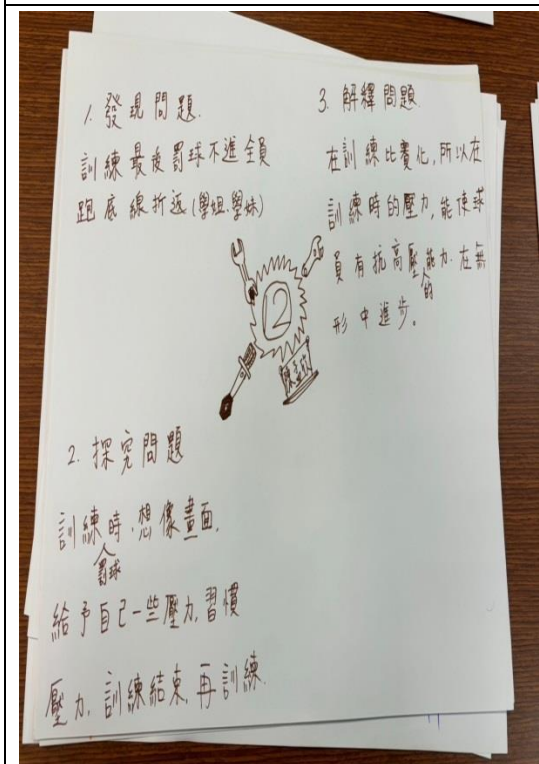 1. 發現問題.
訓練最後罰球不進全員
跑底線折返(學姐.學妹)
3. 解釋問題.
在訓練比賽化,所以在
訓練時的壓力,能使球
員有抗高壓的能力.在無
形中進步。
2
2. 探究問題
訓練時罰球.想像畫面,
給予自己一些壓力,習慣
壓力,訓練結束,再訓練.